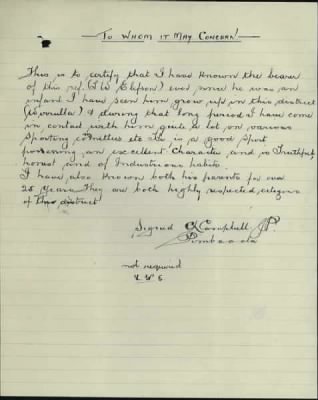 To Whom it May Concern!
This is to certify that I have known the bearer
of this ref. ever since he was an
infant I have seen him grow up in this district
& during that long period I have come
in contact with him quite a lot on various
Sporting etc He is a good Sport
possessing an excellent Character and is Truthful,
honest and of Industrious habits.
I have also known both his parents for over
25 years. They are both highly respected citizens
of this district
Signed Campbell J.P.
not required